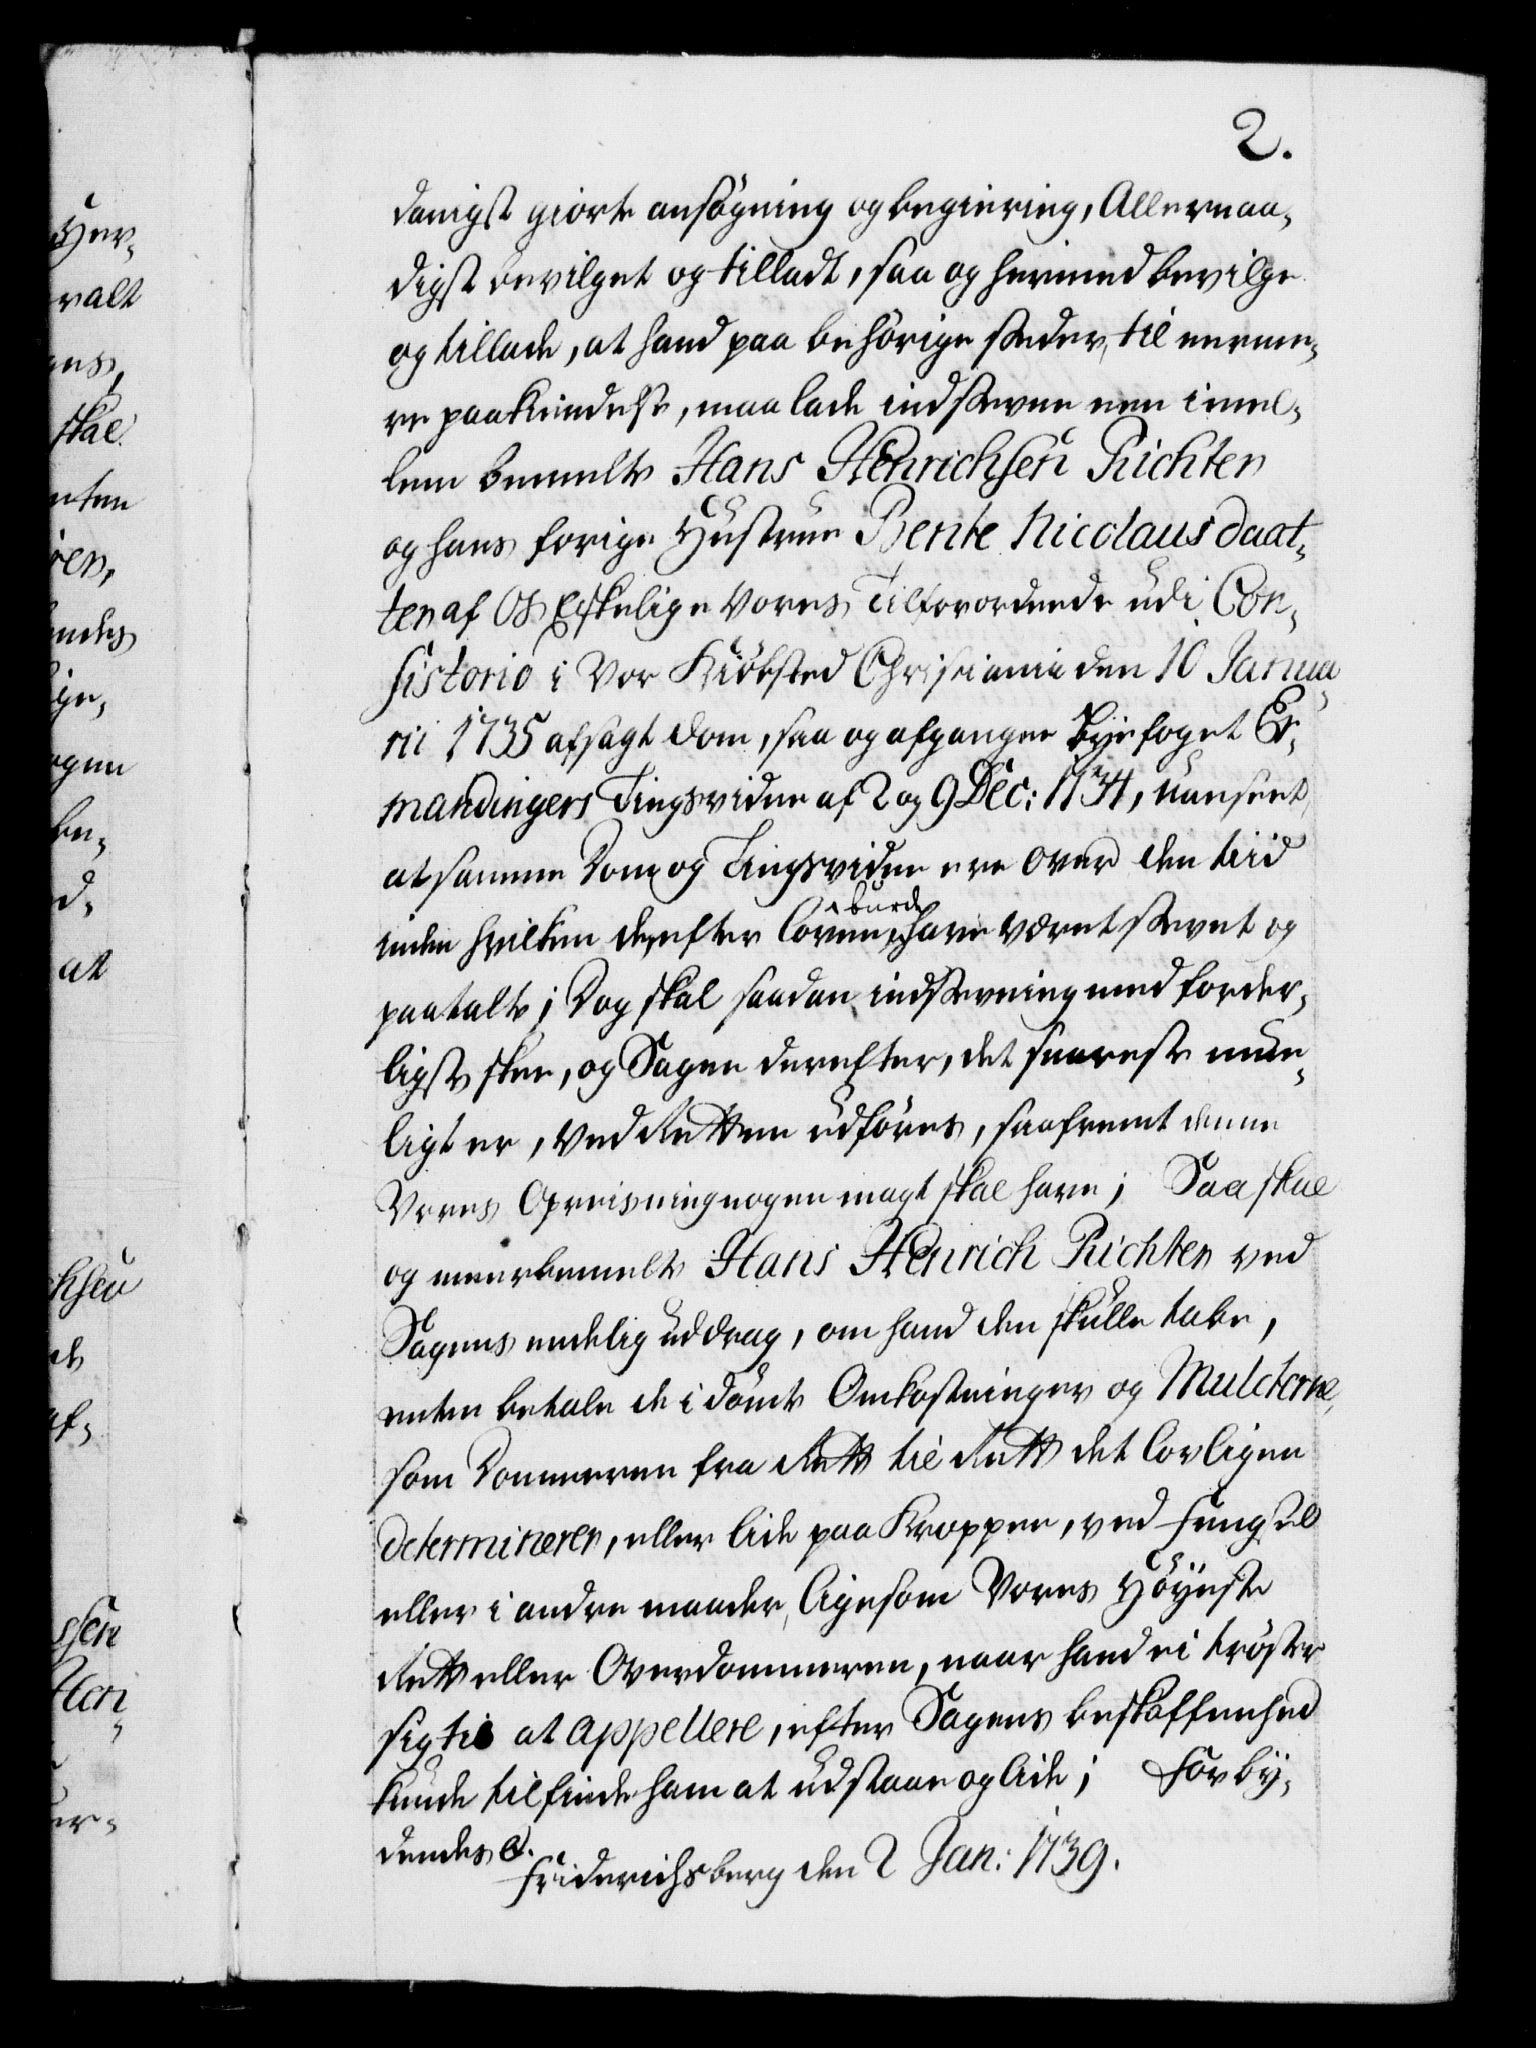 2.
danigst giorte ansøgning og begiering, Allernaa-
digst bevilget og tilladt, saa og hermed bevilge
og tillade, at hand paa behörige steder, til nerme-
re paakiendelse, maa lade indstevne een imel-
lem bemelte Hans Henrichsen Richter
og hans forige Hustrue Bente Nicolausdaat-
ter af Os Elskelige Vores Tilforordnede udi Con-
sistorio i Vor Kiöbsted Christiania den 10 Janua-
rii 1735 afsagt dom, saa og afgangne Byefoget Er-
mandingers Tingsvidne af 2 og 9 Dec: 1734, uanseet,
at samme Dom og Tingsvidne ere over den tiid
inden hvilken de, efter Loven, burde have været stevnt og
paatalt; Dog skal saadan indstevning med forder-
ligst skee, og Sagen derefter, det snareste mue-
ligt er, ved Retten udföres, saafremt denne
Vores Opreisning nogen magt skal have; Saa skal
og meerbemelte Hans Henrich Richter ved
Sagens endelig uddrag, om hand den skulle tabe,
enten betale de i dömte Omkostninger og Mulcterne,
som Dommeren fra Rett til Rett det lovligen
determinerer, eller lide paa Kroppen, ved Fengsel
eller i andre maader, ligesom Vores Höyeste
Rett eller Overdommeren, naar hand ei tröster
sig til at appellere, efter Sagens beskaffenhed
kunde tilfinde ham at udstaae og lide; Forby-
dendes &.
Friderichsberg den 2 Jan: 1739.